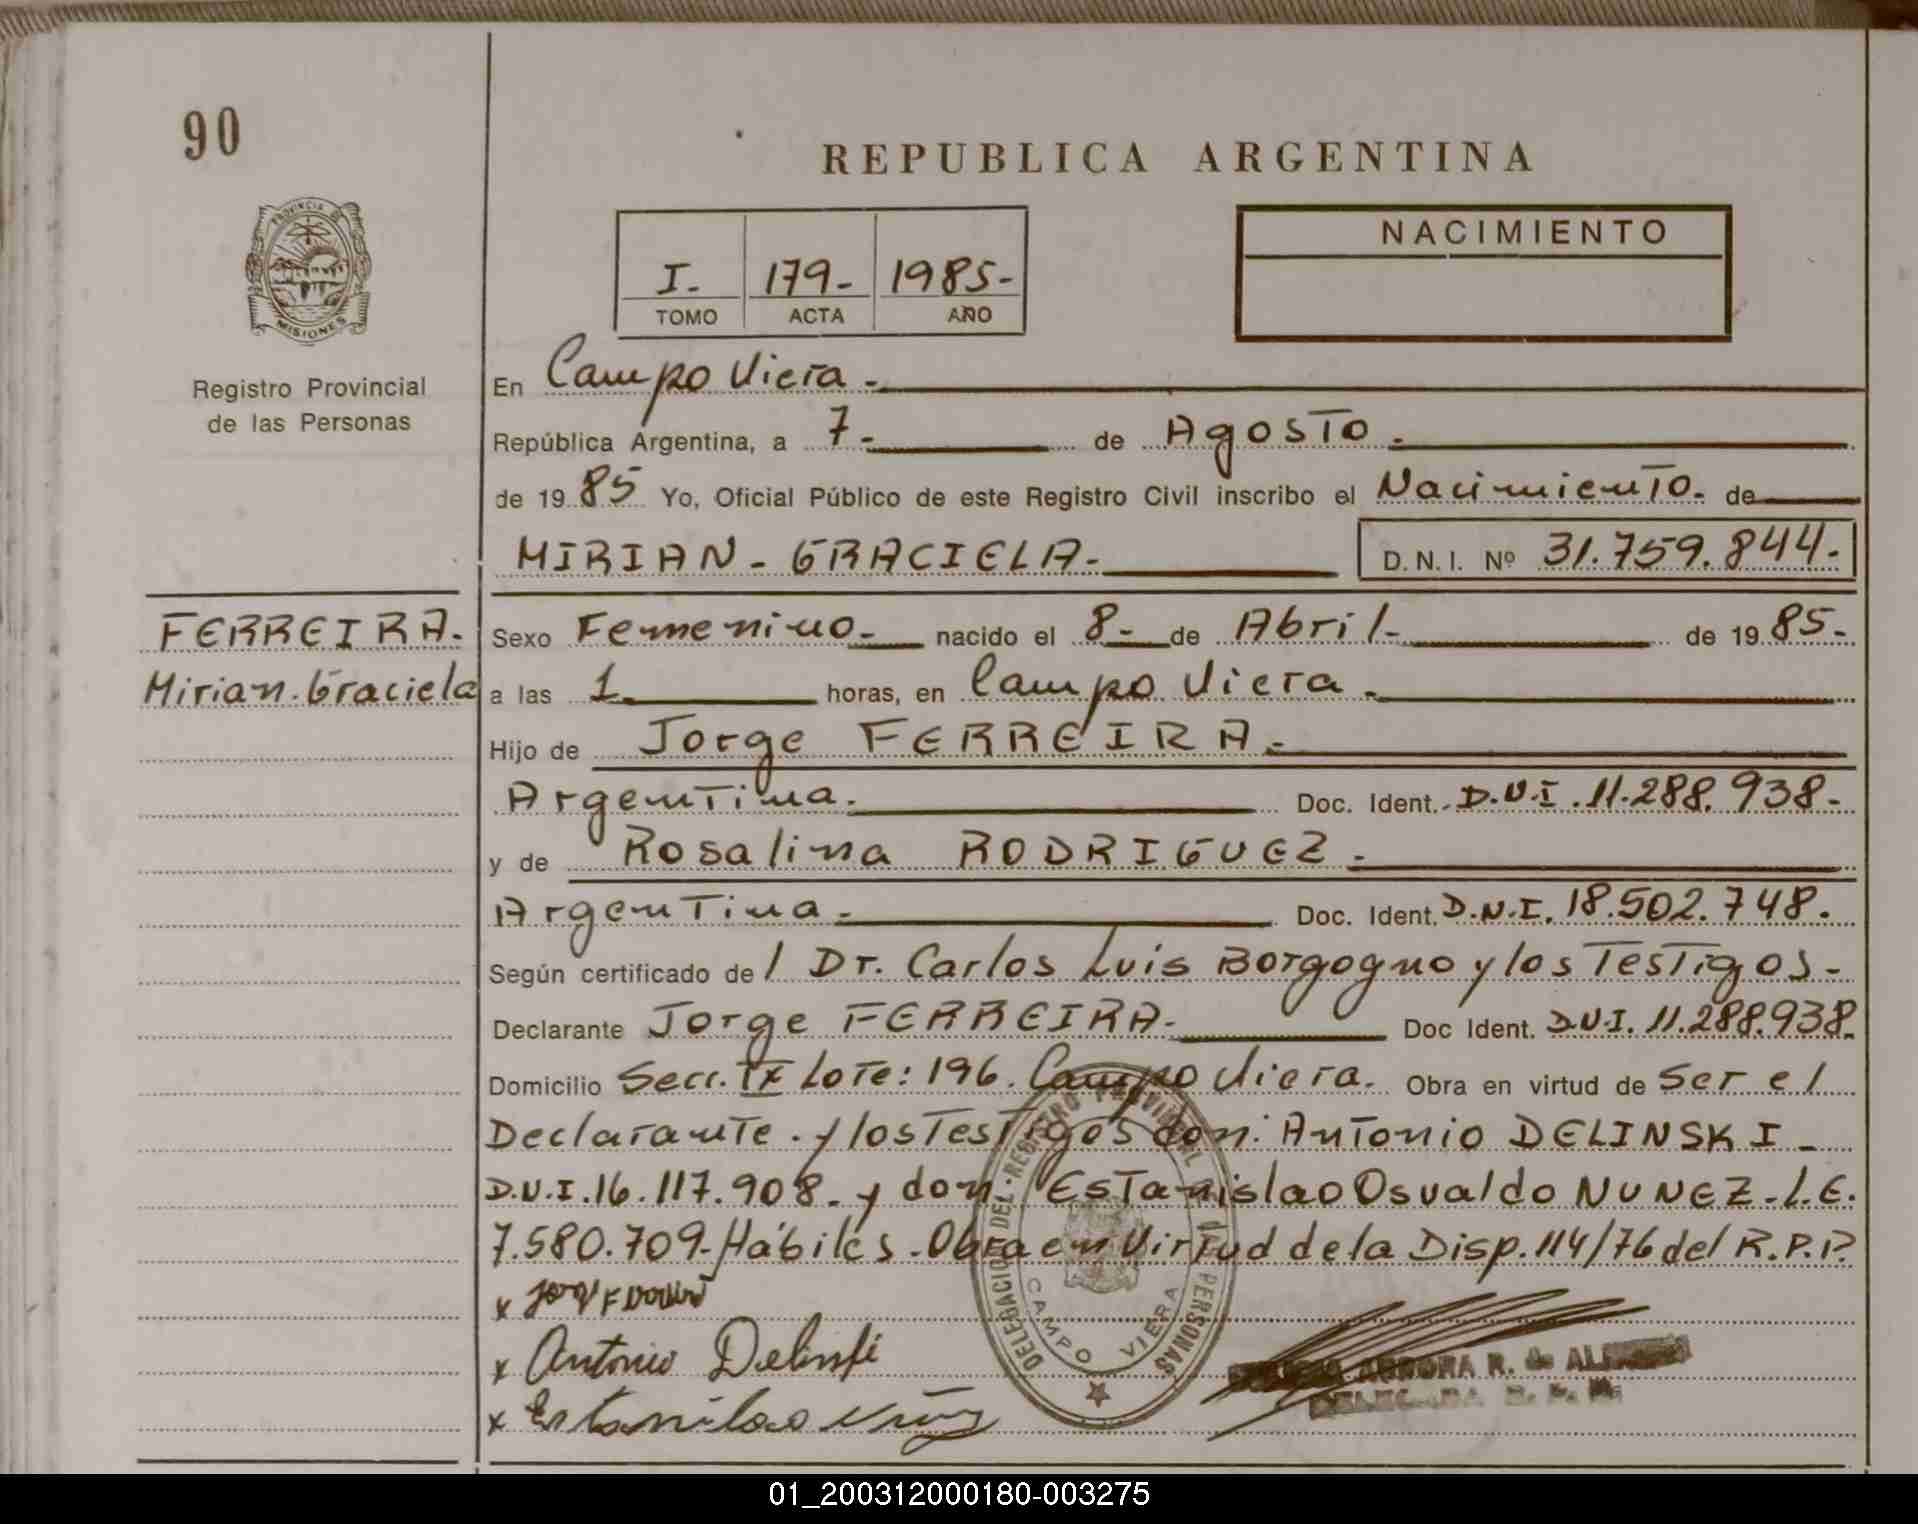 90
REPUBLICA ARGENTINA
PROVINCIA DE
MISIONES
Registro Provincial
de las Personas
I.- 179.- 1985.-
TOMO ACTA AÑO
NACIMIENTO
En Campo Viera.-
República Argentina, a 7.- de Agosto.-
de 19 85 Yo, Oficial Público de este Registro Civil inscribo el Nacimiento.- de
MIRIAN - GRACIELA.- D. N. I. Nº 31.759.844.-
FERREIRA.-
Mirian. Graciela
Sexo Femenino.- nacido el 8.- de Abril.- de 19 85.-
a las 1. horas, en Campo Viera.-
Hijo de Jorge FERREIRA.-
Argentina.- Doc. Ident. D.N.I. 11.288.938.-
y de Rosalina RODRIGUEZ.-
Argentina.- Doc. Ident. D.N.I. 18.502.748.
Según certificado de l Dr. Carlos Luis Borgogno y los Testigos.-
Declarante Jorge FERREIRA.- Doc Ident. D.N.I. 11.288.938.
Domicilio Secc. IX Lote: 196. Campo Viera. Obra en virtud de Ser el
Declarante. y los Testigos don: Antonio DELINSKI -
D.N.I. 16.117.908.- y don Estanislao Osvaldo NUNEZ.- L.E.
7.580.709.- Hábiles.- Obra en Virtud de la Disp. 114/76 del R.P.P.
x
x Antonio Delinski
x Estanislao
DELEGACION DEL REGISTRO PROVINCIAL DE PERSONAS
CAMPO VIERA
AURORA R. de
DELEGADA R. P.
01_200312000180-003275